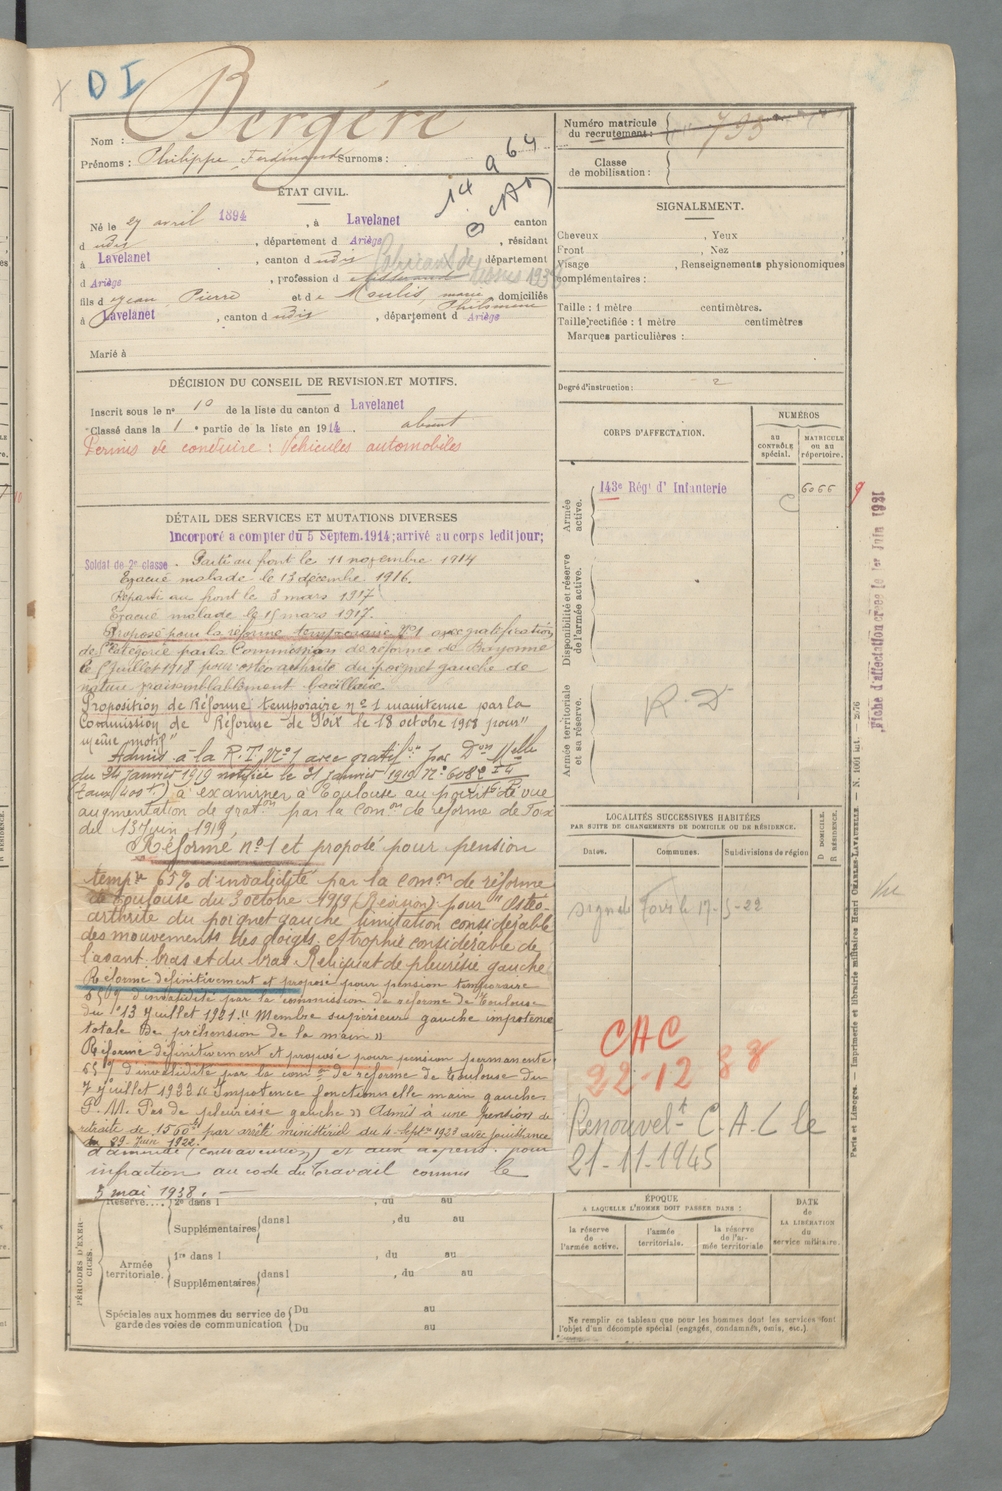 X DI
Bergère
Nom :
Prénoms : Philippe Ferdinand Surnoms :
14 9 64
CAD
ÉTAT CIVIL.
Né le 27 avril 1894, à Lavelanet canton
d udis, département d Ariège, résidant
à Lavelanet, canton d udis département
d Ariège, profession d
Fabricant de 1938
fils d Jean Pierre et de Moulis, marie Philomène domiciliés
à Lavelanet, canton d udis, département d Ariège
Marié à
DÉCISION DU CONSEIL DE REVISION ET MOTIFS.
Inscrit sous le n° 10 de la liste du canton d Lavelanet
Classé dans la 1e partie de la liste en 1914. absent
Permis de conduire : Véhicules automobiles
DÉTAIL DES SERVICES ET MUTATIONS DIVERSES
Incorporé a compter du 5 Septem. 1914; arrivé au corps ledit jour;
Soldat de 2e classe. Parti au front le 11 novembre 1914
Evacué malade le 13 décembre 1916.
Reparti au front le 3 mars 1917
Evacué malade le 15 mars 1917.
Proposé pour la réforme temporaire n°1 avec gratification
de catégorie par la Commission de réforme de Bayonne
le juillet 1918 pour ostéo arthrite du poignet gauche de
nature vraisemblablement bacillaire.
Proposition de Réforme temporaire n° 1 maintenue par la
Commission de Réforme de Foix le 18 octobre 1918 pour "
même motif"
Admis à la R.T. N°1 avec gratif.on par Don Melle
du 24 janvier 1919 notifiée le 31 janvier 1919 N° 608
(taux 400f) à examiner à Toulouse au point de vue
augmentation de grat.on par la Com.on de réforme de Foix
du 13 Juin 1919
Réformé n°1 et proposé pour pension
tempre 65% d'invalidité par la com.on de réforme
de Toulouse du 3 octobre 1919 (Révision) pour "Ostéo-
arthrite du poignet gauche limitation considérable
des mouvements des doigts. Atrophie considérable de
l'avant-bras et du bras Reliquat de pleurésie gauche
Réformé définitivement et proposé pour pension temporaire
65% d'invalidité par la commission de réforme de Toulouse
du 13 Juillet 1921 "Membre supérieur gauche impotence
totale de préhension de la main"
Réformé définitivement et proposé pour pension permanente
65% d'invalidité par la com.on de réforme de Toulouse du
7 juillet 1922 "Impotence fonctionnelle main gauche
P. M. Pes de pleurésie gauche" Admis à une pension de
retraite de 1560f par arrêté ministériel du 4 Septre 1923 avec jouissance
du 29 Juin 1922.
d'amende (contravention) et aux dépens pour
infraction au code du Travail commis le
3 mai 1938. —
PÉRIODES D'EXERCICES.
Réserve.... 2e dans l , du au
Supplémentaires dans l , du au
Armée territoriale. 1re dans l , du au
Supplémentaires dans l , du au
Spéciales aux hommes du service de garde des voies de communication
Du au
Du au
Numéro matricule du recrutement : 793
Classe de mobilisation :
SIGNALEMENT.
Cheveux , Yeux ,
Front , Nez ,
Visage , Renseignements physionomiques
complémentaires :
Taille : 1 mètre centimètres.
Taille rectifiée : 1 mètre centimètres
Marques particulières :
Degré d'instruction : 2
CORPS D'AFFECTATION.
NUMÉROS
AU CONTRÔLE spécial.
MATRICULE ou au répertoire.
Armée active.
143e Régt d'Infanterie
6066 9
C
Disponibilité et réserve de l'armée active.
Armée territoriale et sa réserve.
R.D
LOCALITÉS SUCCESSIVES HABITÉES
PAR SUITE DE CHANGEMENTS DE DOMICILE OU DE RÉSIDENCE.
Dates.
Communes.
Subdivisions de région
D DOMICILE.
R RÉSIDENCE.
17-5-22
CAC
22-12 38
Renouvelt C.A.C le
21-11-1945
ÉPOQUE
A LAQUELLE L'HOMME DOIT PASSER DANS :
la réserve de l'armée active.
l'armée territoriale.
la réserve de l'armée territoriale
DATE de LA LIBÉRATION du service militaire.
Ne remplir ce tableau que pour les hommes dont les services font
l'objet d'un décompte spécial (engagés, condamnés, omis, etc.).
"Fiche d'affectation créée le 1er Juin 1931
Vu
Paris et Limoges. — Imprimerie et librairie militaires Henri CHARLES-LAVAUZELLE.